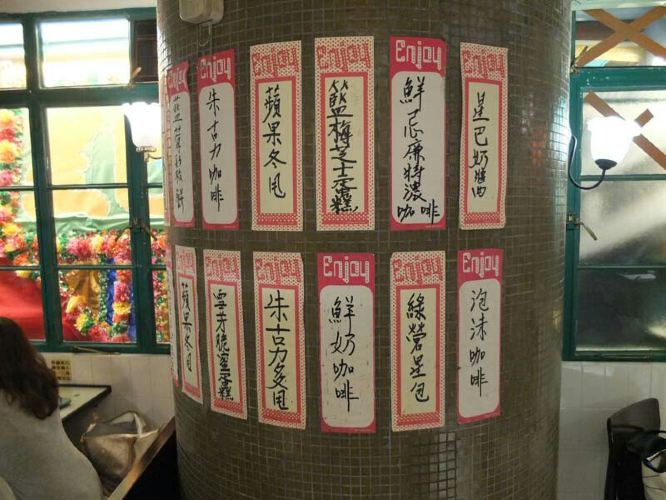 Enjoy
朱古力咖啡
Enjoy
蘋果冬甩
Enjoy
籃梅芝士蛋糕
Enjoy
鮮忌廉特濃咖啡
Enjoy
星巴奶醬
Enjoy
蘋果冬甩
Enjoy
雪芽脆蜜蛋糕
Enjoy
朱古力多甩
Enjoy
鮮奶咖啡
Enjoy
綠營星包
Enjoy
泡沬咖啡